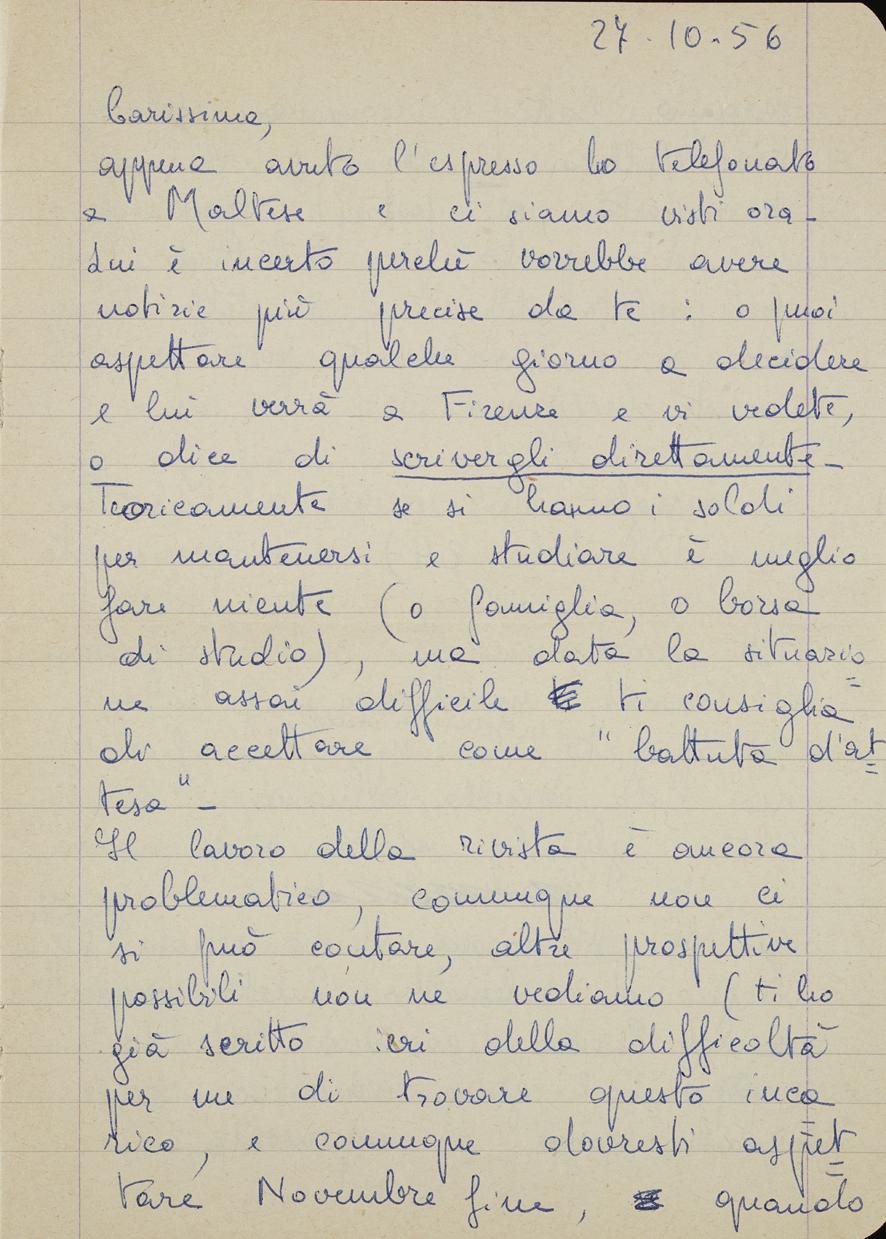 27.10.56
Carissima,
appena avuto l'espresso ho telefonato
a Maltese e ci siamo visti ora-
Lui è incerto perchè vorrebbe avere
notizie più precise da te : o puoi
aspettare qualche giorno a decidere
e lui verrà a Firenze e vi vedete,
o dice di scrivergli direttamente-
Teoricamente se si hanno i soldi
per mantenersi e studiare è meglio
fare niente (o famiglia, o borsa
di studio), ma data la situazio=
ne assai difficile ti consiglia
di accettare come "battuta d'at=
tesa"-
Il lavoro della rivista è ancora
problematico, comunque non ci
si può contare, altre prospettive
possibili non ne vediamo (ti ho
già scritto ieri della difficoltà
per me di trovare questo inca=
rico, e comunque dovresti aspet=
tare Novembre fine, quando